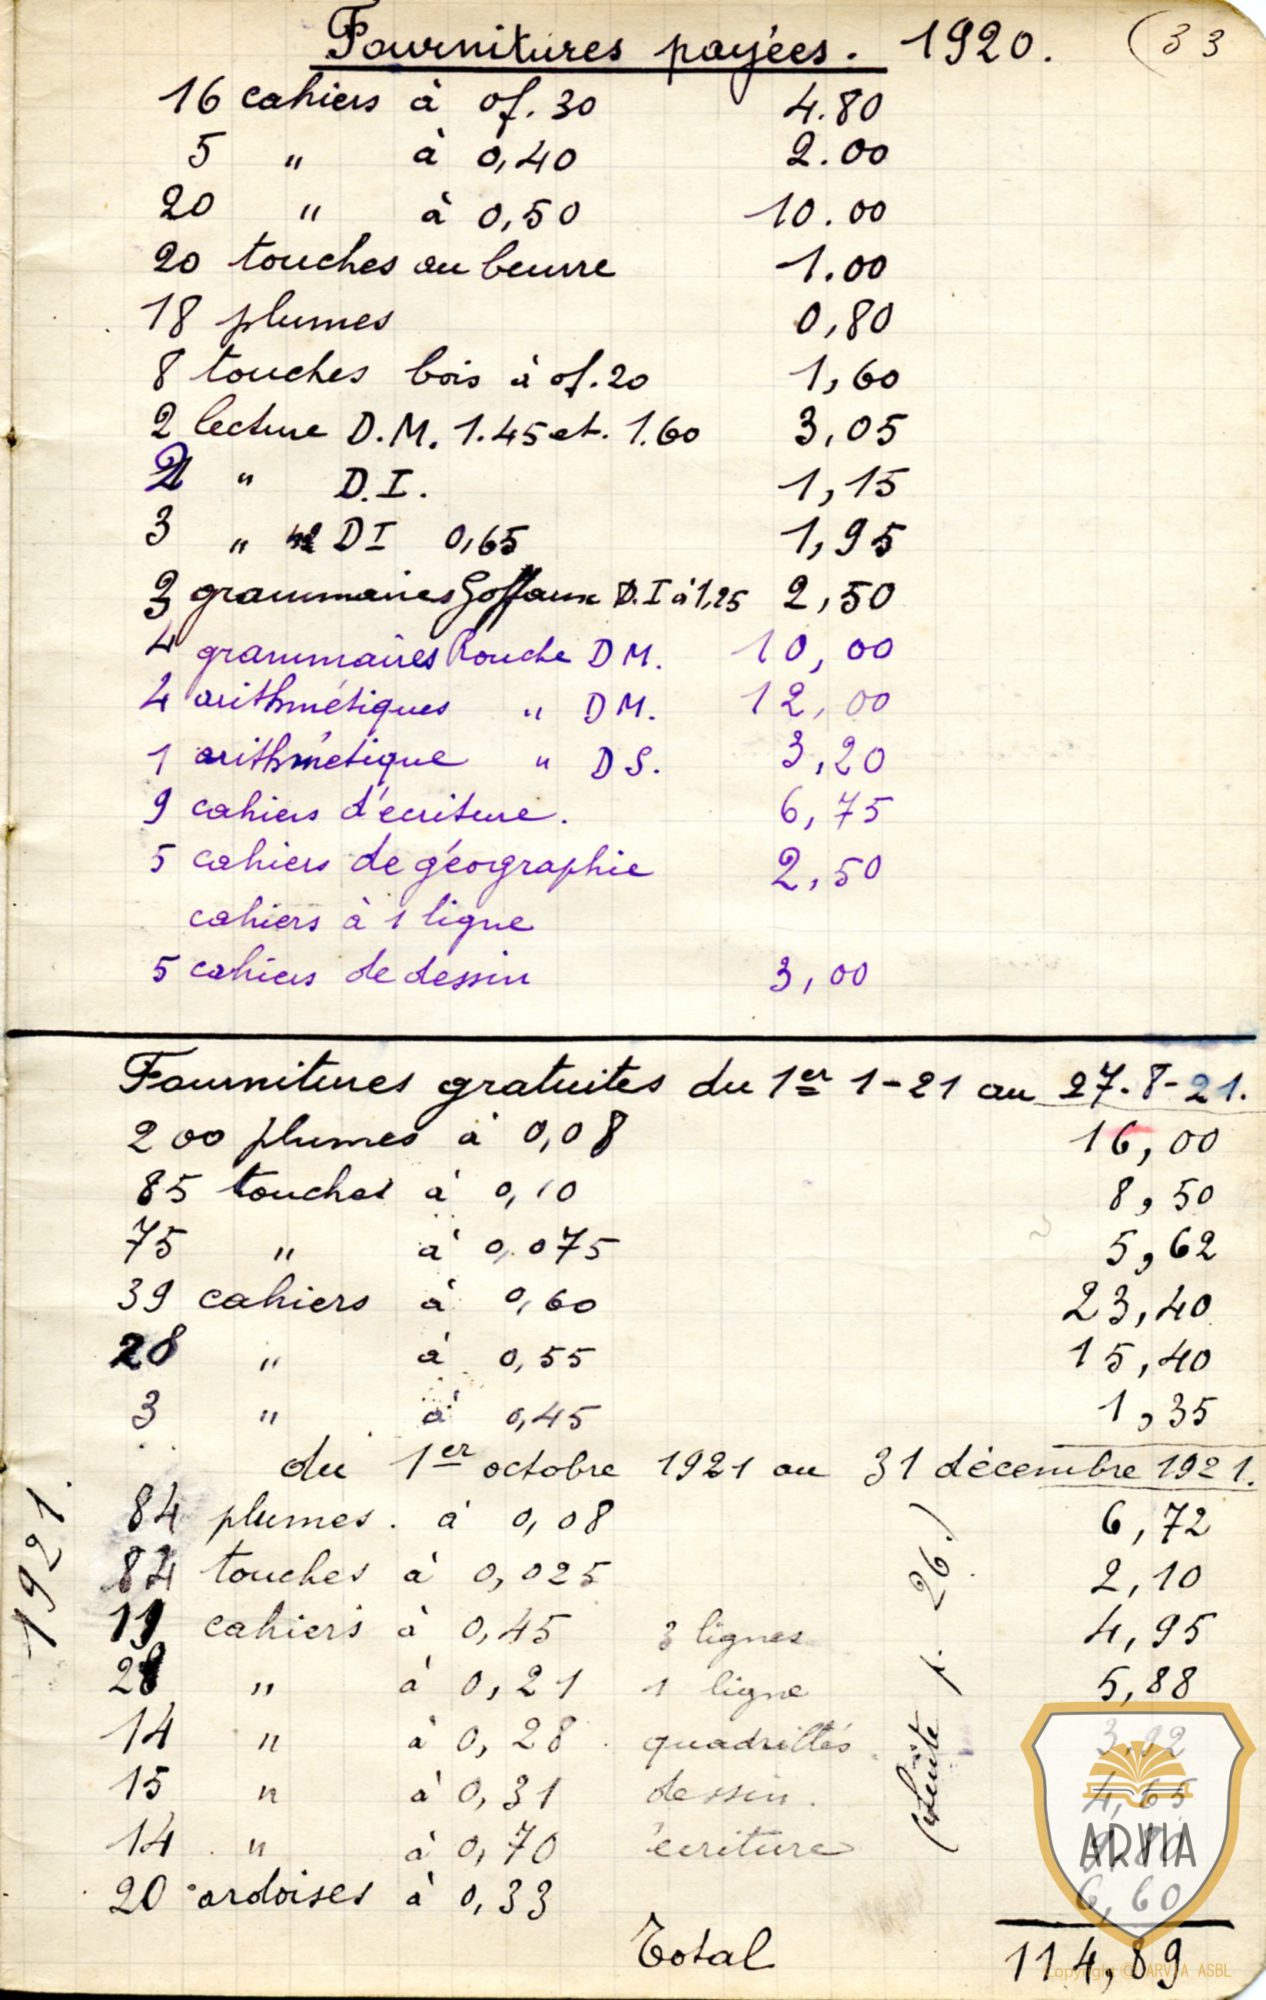 Fournitures payées. 1920. (33
16 cahiers à 0f.30 4.80
5 " à 0,40 2.00
20 " à 0,50 10.00
20 touches au beurre 1.00
18 plumes 0,80
8 touches bois à 0f.20 1,60
2 lecture D.M. 1.45 et. 1.60 3,05
2 " D.I. 1,15
3 " DI 0,65 1,95
grammaires Goffaux D.I à 1,25 2,50
4 grammaires Rouche DM. 10,00
4 arithmétiques " DM. 12,00
1 arithmétique " DS. 3,20
9 cahiers d'écriture. 6,75
5 cahiers de géographie 2,50
cahiers à 1 ligne
5 cahiers de dessin 3,00
Fournitures gratuites du 1er 1-21 au 27-8-21.
200 plumes à 0,08 16,00
85 touches à 0,10 8,50
75 " à 0,075 5,62
39 cahiers à 0,60 23,40
28 " à 0,55 15,40
3 " à 0,45 1,35
du 1er octobre 1921 au 31 décembre 1921.
1921.
84 plumes. à 0,08 6,72
84 touches à 0,025 2,10
11 cahiers à 0,45 3 lignes 4,95
28 " à 0,21 1 ligne 5,88
14 " à 0,28 quadrillés 3,92
15 " à 0,31 dessin. 4,65
14 " à 0,70 écriture 9,80
20 ardoises à 0,33 6,60
(Suite p. 26.)
Total 114,89
ARVIA
Copyright © ARVIA ASBL